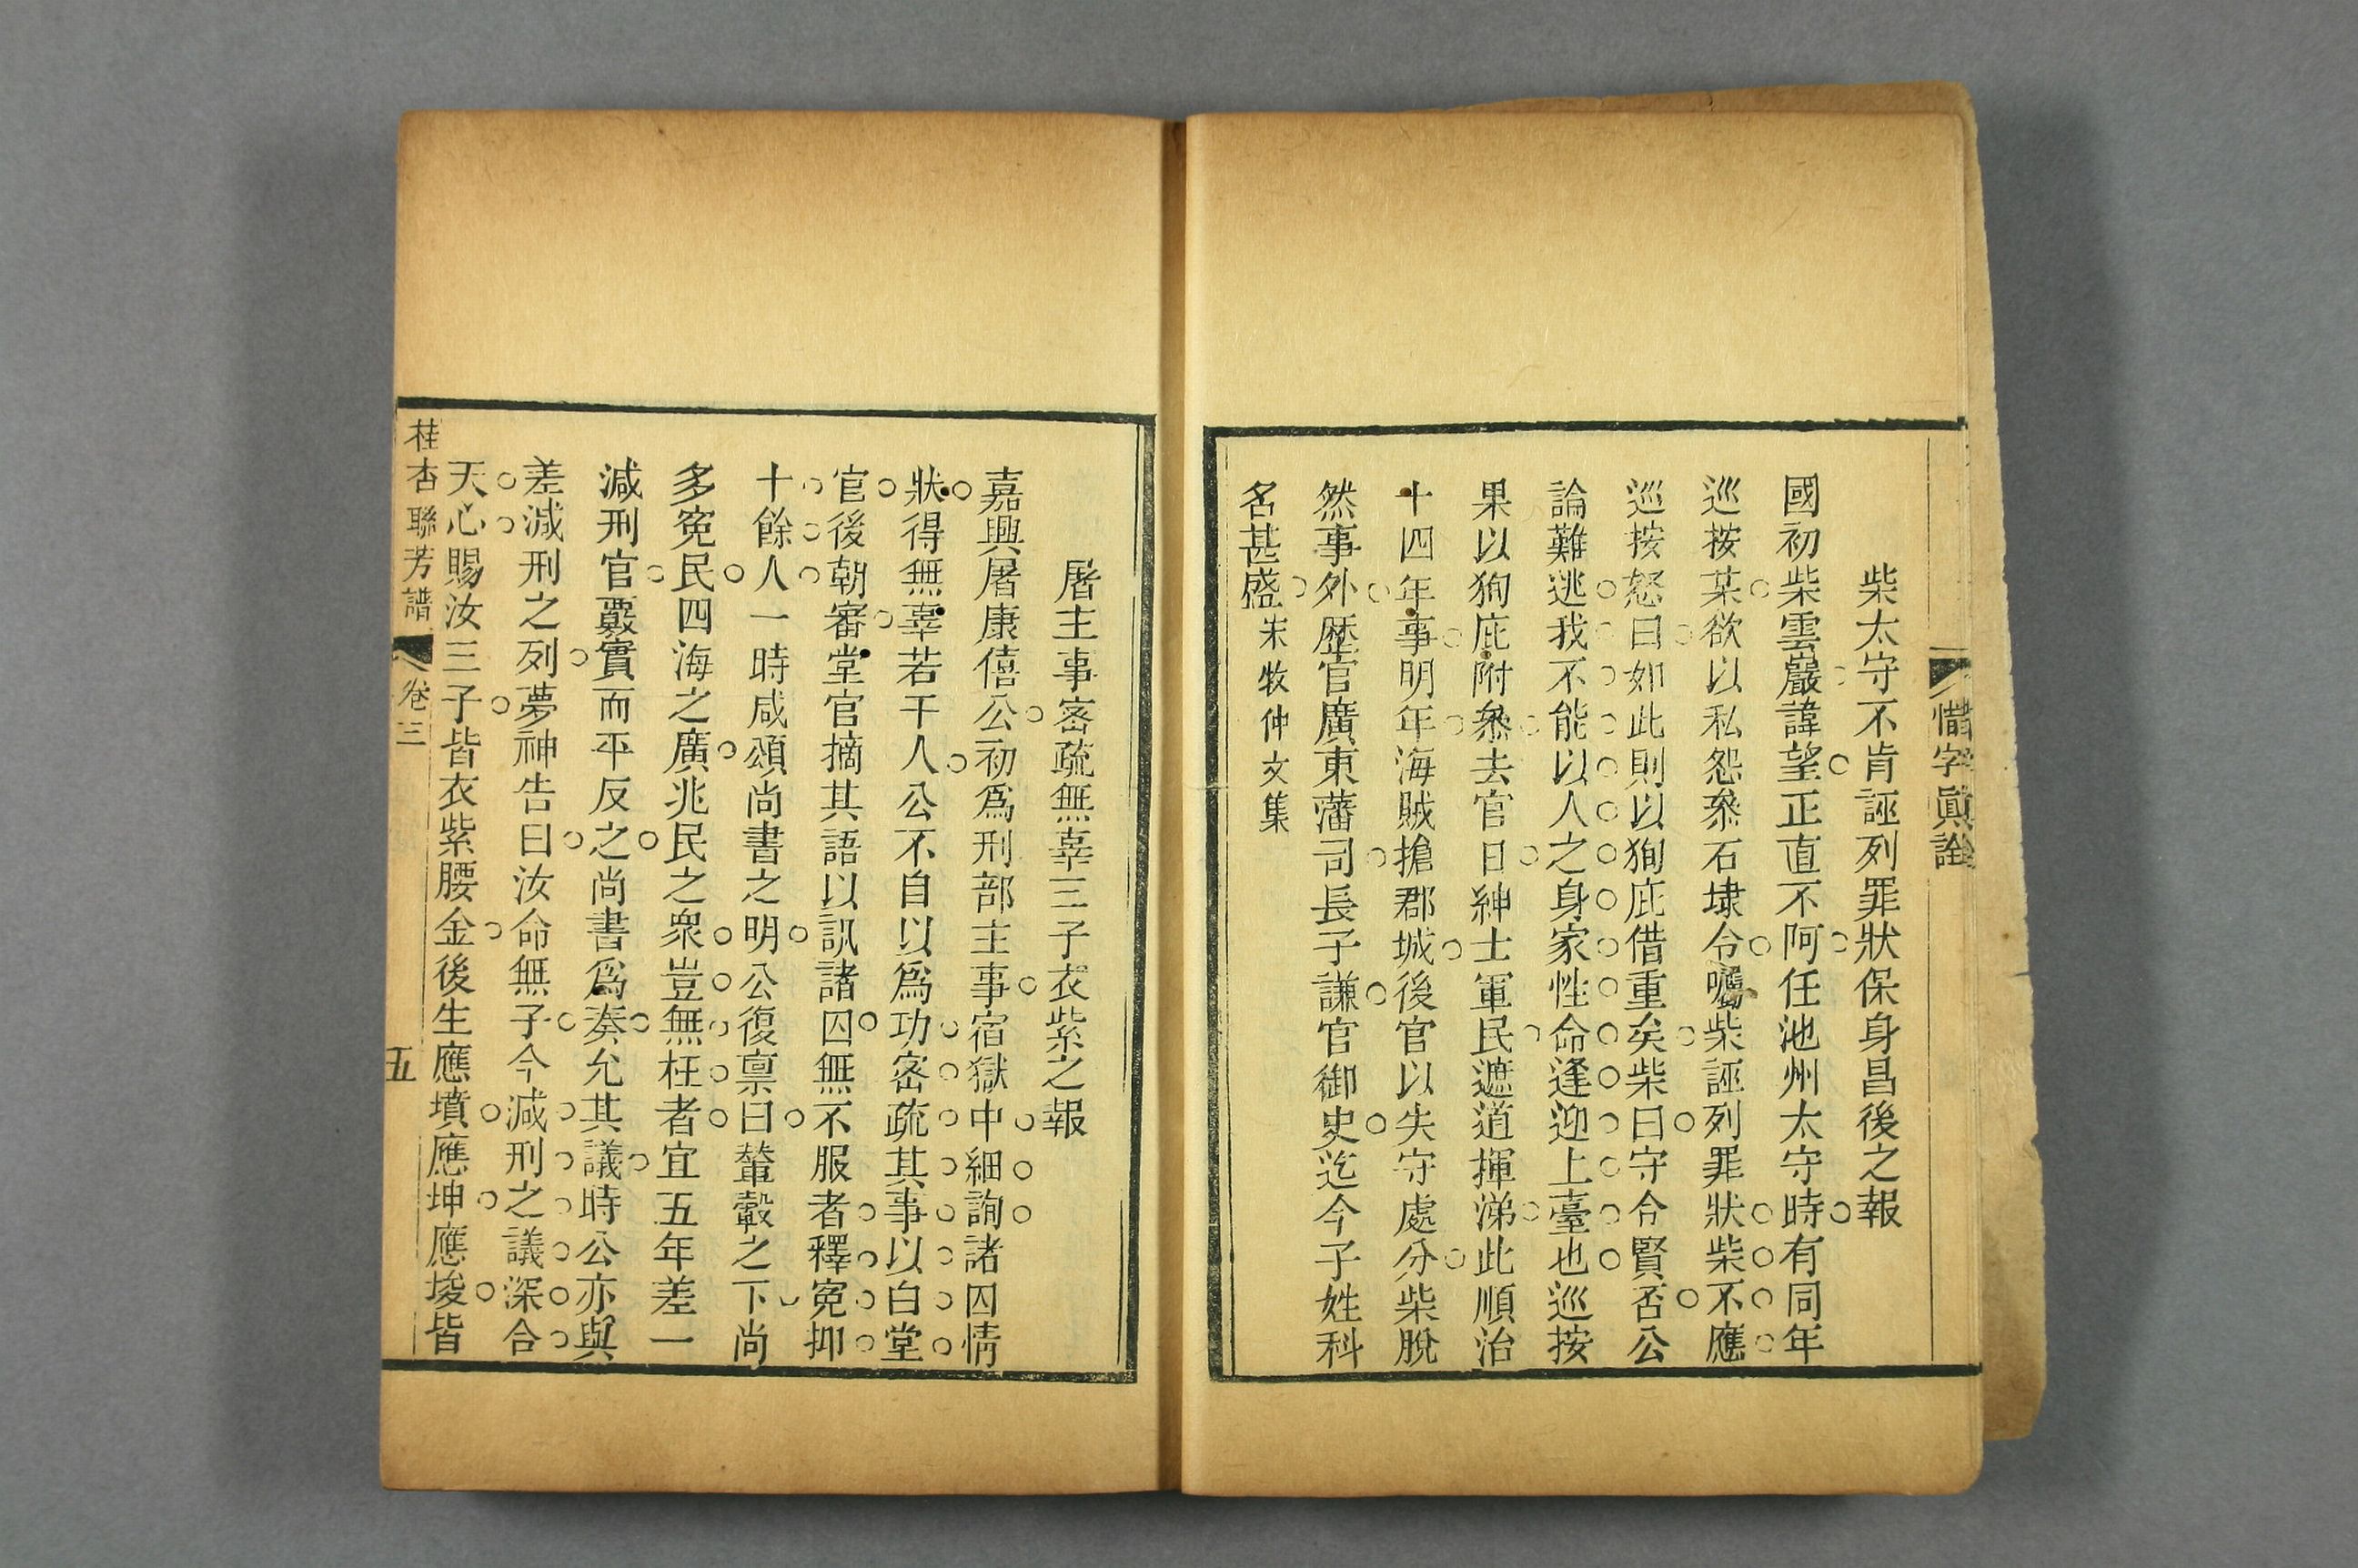 惜字眞詮
柴太守不肯誣列罪狀保身昌後之報
國初柴雲巖諱望正直不阿任池州太守時有同年
巡按某欲以私怨叅石埭令囑柴誣列罪狀柴不應
巡按怒曰如此則以狥庇借重矣柴曰守令賢否公
論難逃我不能以人之身家性命逢迎上臺也巡按
果以狥庇附叅去官日紳士軍民遮道揮涕此順治
十四年事明年海賊搶郡城後官以失守處分柴脫
然事外歴官廣東藩司長子謙官御史迄今子姓科
名甚盛朱牧仲文集
屠主事密疏無辜三子衣紫之報
嘉興屠康僖公初爲刑部主事宿獄中細詢諸囚情
狀得無辜若干人公不自以爲功密疏其事以白堂
官後朝審堂官摘其語以訊諸囚無不服者釋寃抑
十餘人一時咸頌尚書之明公復禀曰輦轂之下尚
多寃民四海之廣兆民之衆豈無枉者宜五年差一
減刑官覈實而平反之尚書爲奏允其議時公亦與
差減刑之列夢神告曰汝命無子今減刑之議深合
天心賜汝三子皆衣紫腰金後生應墳應坤應埈皆
桂杏聯芳譜 卷三 五